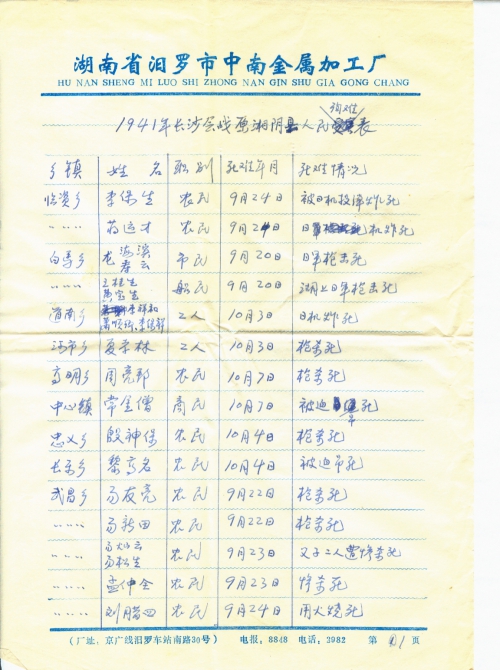 湖南省汨罗市中南金属加工厂
HU NAN SHENG MI LUO SHI ZHONG NAN GIN SHU GIA GONG CHANG
殉难
1941年长沙会战原湘阴县人民表
乡镇 姓名 职别 死难年月 死难情况
临资乡 李保生 农民 9月24日 被日机投弹炸死
〃〃〃 蒋运才 农民 9月24日 日机炸死
白马乡 龙海滨 春云 市民 9月20日 日军枪击死
〃〃〃 王桂生 黄宝生 船民 9月20日 湖上日军枪击死
道南乡 工人 10月3日 日机炸死
汤市乡 夏荣林 工人 10月3日 枪杀死
高明乡 周亮邦 农民 10月7日 枪杀死
中心镇 常金僧 商民 10月7日 被迫吊死
忠义乡 殷神保 农民 10月4日 枪杀死
长乐乡 黎高名 农民 10月4日 被迫吊死
武昌乡 易友亮 农民 9月22日 枪杀死
〃〃〃 易新田 农民 9月22日 枪杀死
〃〃〃 易松生 农民 9月23日 父子二人惨杀死
〃〃〃 孟仲全 农民 9月23日 惨杀死
〃〃〃 刘腊四 农民 9月24日 用火烧死
(厂址:京广线汨罗车站南路30号) 电报:8848 电话:3982 第1页